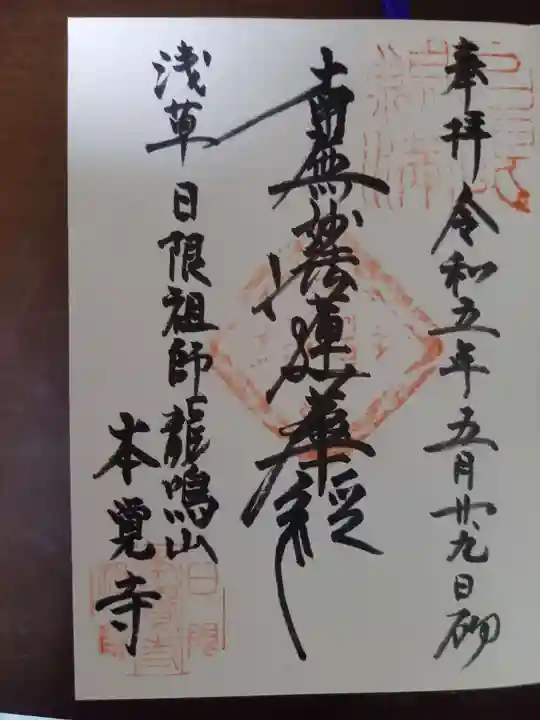 奉拝 令和五年五月廿九日砌
南無妙法蓮華経
浅草 日限祖師龍鳴山
本覚寺
日限